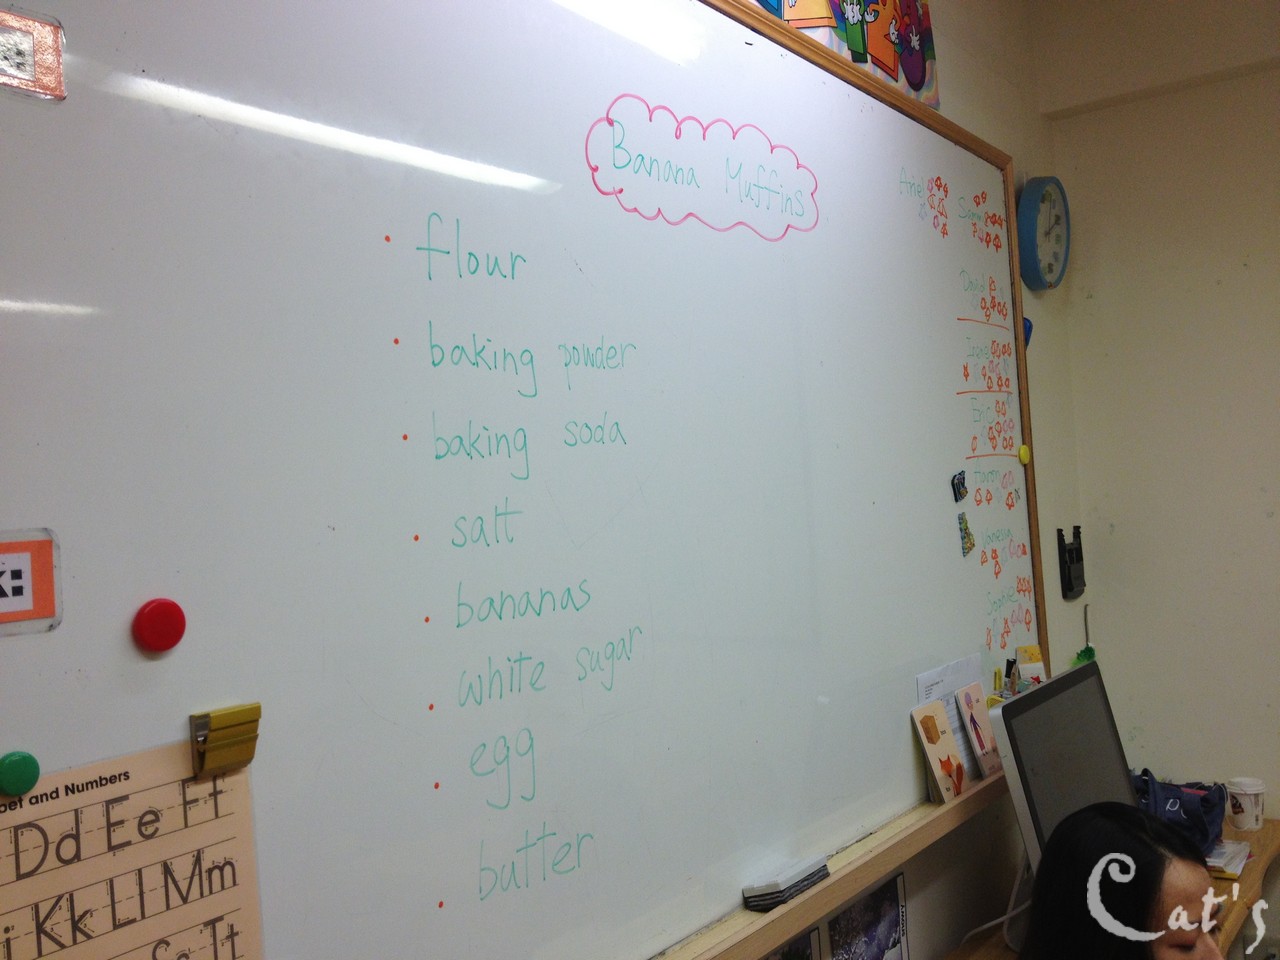 Banana Muffins
flour
baking powder
baking soda
salt
bananas
white sugar
egg
butter
Ariel
David
Irene
Eric
Aaron
Vanessa
Sophie
K:
bet and Numbers
Dd Ee Ff
Kk Ll Mm
Tt
Cat's